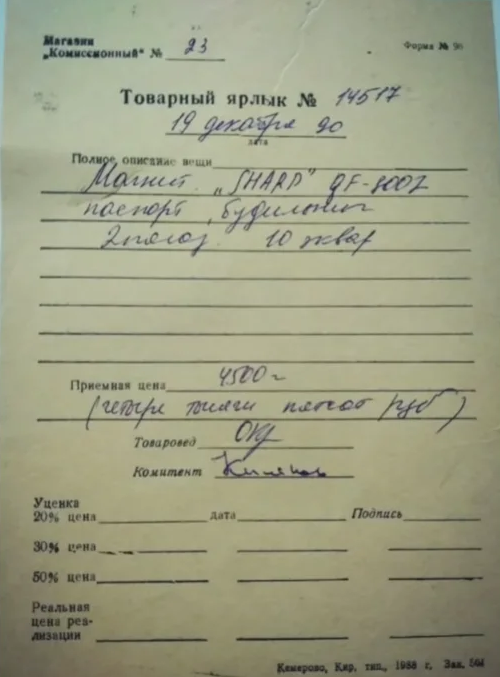 Магазин
„Комиссионный“ № 23
Форма № 90
Товарный ярлык № 14517
19 декабря 90
дата
Полное описание вещи
Магнит. „SHARP“ GF-800Z
паспорт, будильник
2 колод. 10 эквар
Приемная цена 4500=
(четыре тысячи пятсот руб)
Товаровед
Комитент
Уценка
20% цена дата Подпись
30% цена
50% цена
Реальная
цена реа-
лизации
Кемерово, Кир. тип., 1988 г. Зак. 504